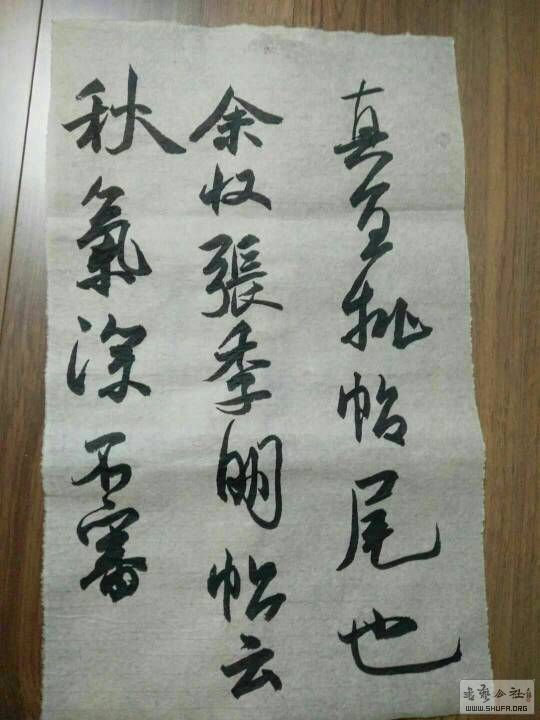 真宜批帖尾也
余收張季明帖云
秋氣深不審
书艺公社
WWW.SHUFA.ORG